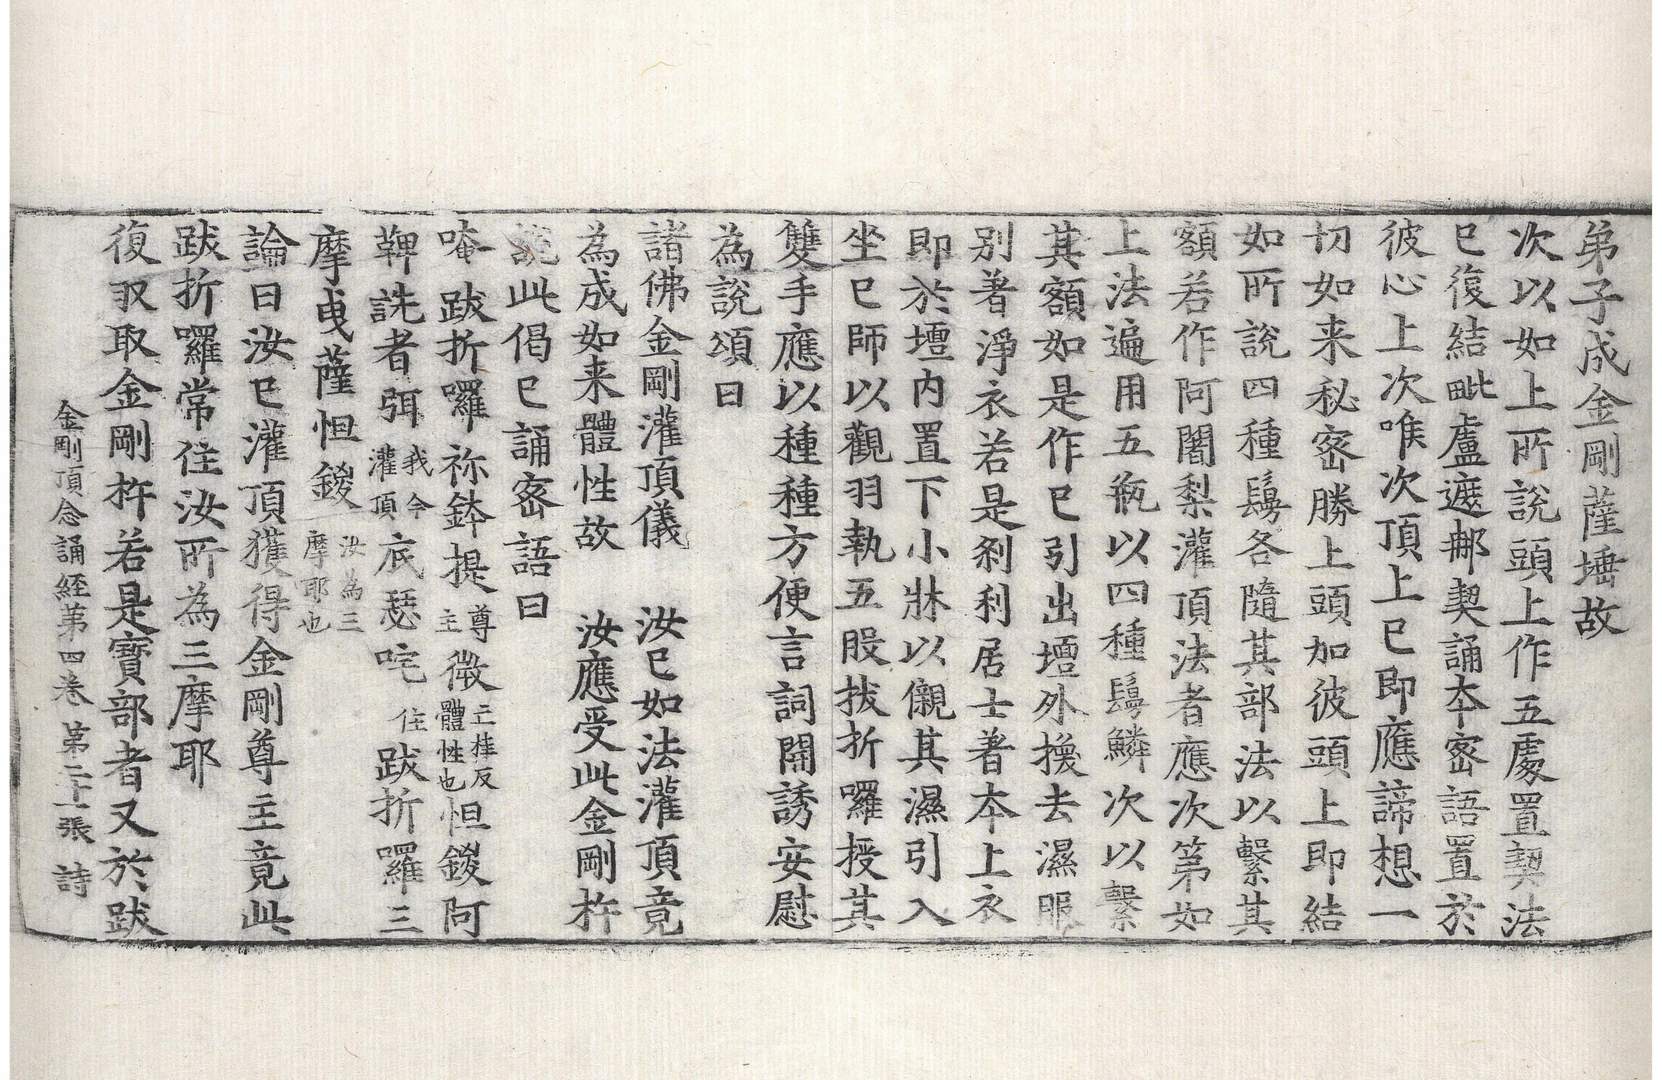 弟子成金剛薩埵故
次以如上所說頭上作五處置契法
已復結毗盧遮那契誦本密語置於
彼心上次喉次頂上已即應諦想一
切如来秘密勝上頭加彼頭上即結
如所說四種鬘各隨其部法以繫其
額若作阿闍梨灌頂法者應次第如
上法遍用五瓶以四種鬘鱗次以繫
其額如是作已引出壇外換去濕服
別著淨衣若是剎利居士著本上衣
即於壇內置下小牀以儭其濕引入
坐已師以觀羽執五股拔折囉授其
雙手應以種種方便言詞開誘安慰
為說頌曰
諸佛金剛灌頂儀　汝已如法灌頂竟
為成如来體性故　汝應受此金剛杵
說此偈已誦密語曰
唵跋折囉祢鉢提尊主微二合桂反體性也怛鍐阿
鞞詵者弭我今灌頂底瑟咤住跋折囉三
摩曳薩怛鍐汝為三摩耶也
論曰汝已灌頂獲得金剛尊主竟此
跋折囉常住汝所為三摩耶
復収取金剛杵若是寶部者又於跋
金剛頂念誦経苐四卷　第二十一張　詩